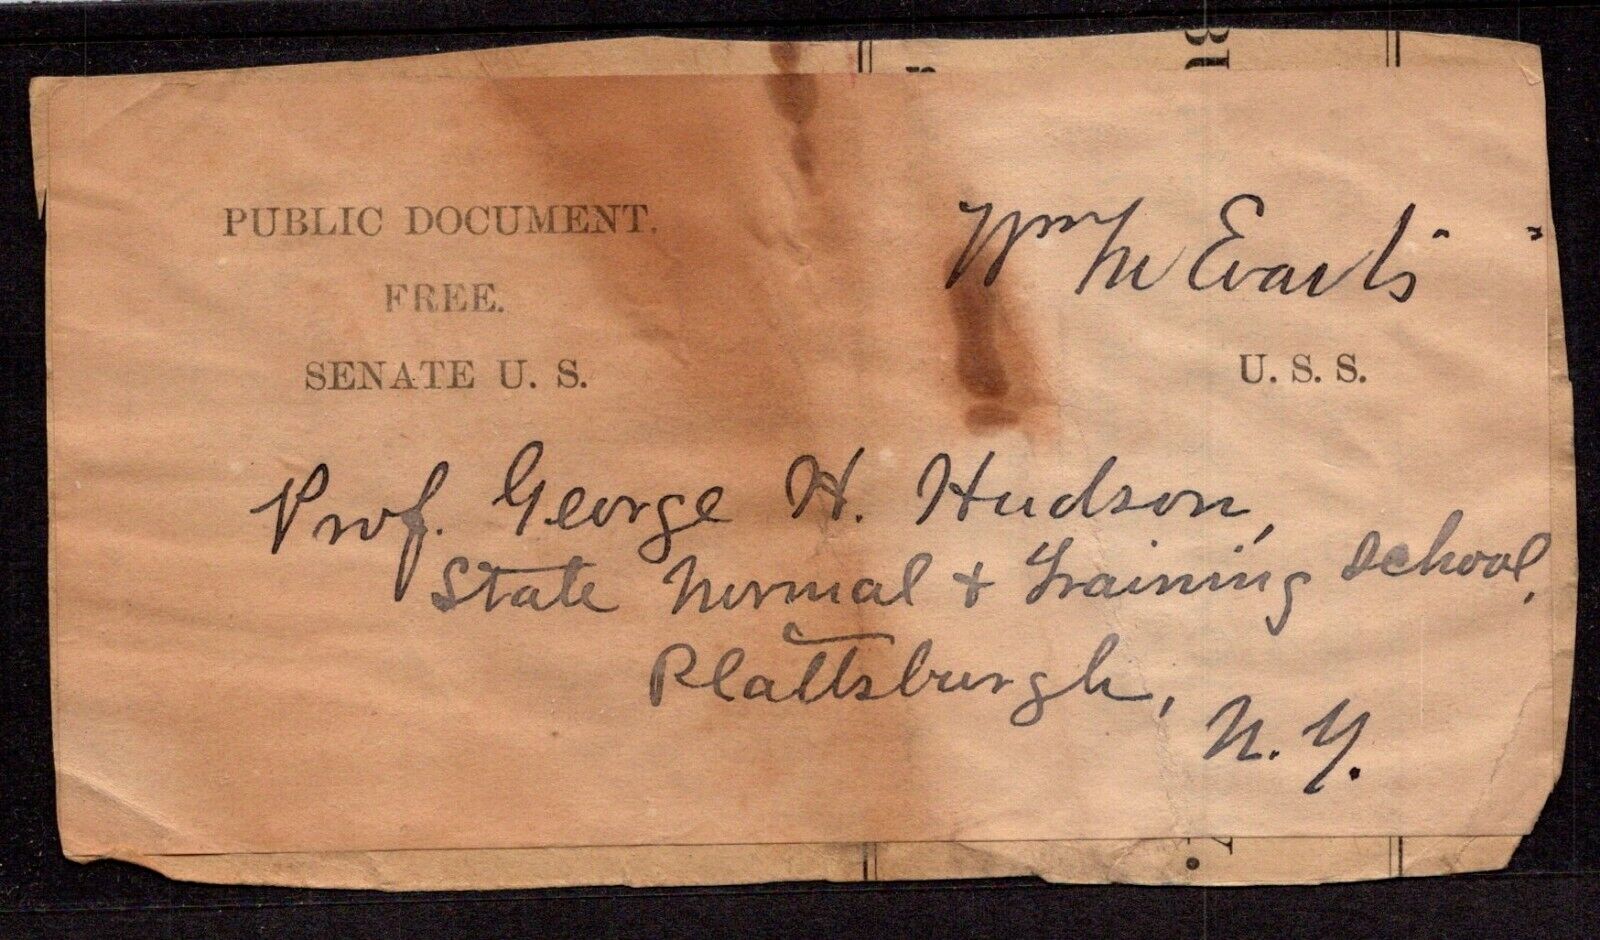 PUBLIC DOCUMENT.
FREE.
SENATE U. S.
Wm M Evarts
U. S. S.
Prof. George H. Hudson,
State Normal + Training School,
Plattsburgh,
N. Y.